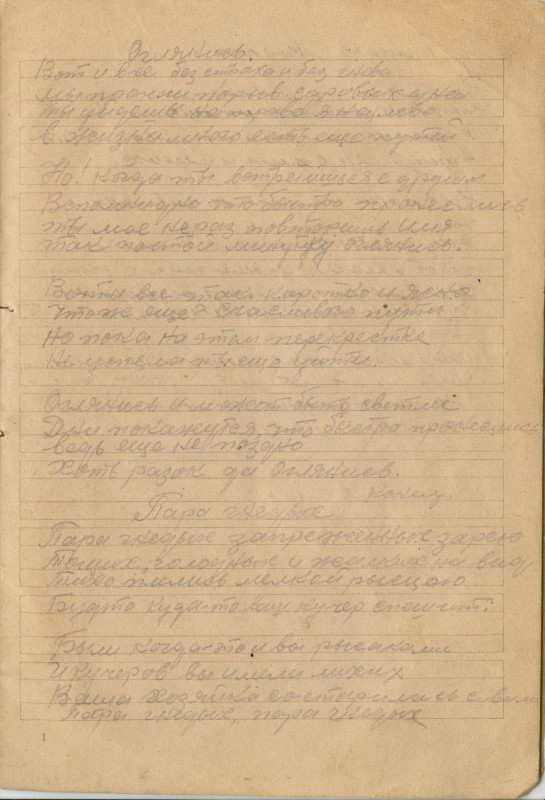 Оглянись.
Вот и все без страха и без гнева
мы прочли порыв суровых
ты уйдешь на право я на лево
в жизни много есть еще путей

Но! Когда ты встретишься с другим
Вспоминая что быстро пронеслись
ты мое нераз повторишь имя
так постой минутку Оглянись.

Вот и все так каротко и ясно
Что же еще? счасливого пути
Но пока на этом перекрестке
Не успела ты еще уйти.

Оглянись и может быть светлее
Дни покажутся, что быстро пронеслись
ведь еще не поздно
Хоть разок да Оглянись.
конец
Пара гнедых
Пара гнедых запреженных зарею
Тощих, голодных и жалких на вид,
плетись мелкой рысцою
Будто куда-то ваш кучер спешит.

Были когда-то и вы рысаками
И кучеров вы имели лихих
Ваша хозяйка состарилась с вами
пара гнедых, пара гнедых